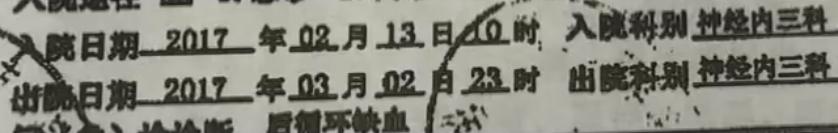 入院日期 2017 年 02 月 13 日 10 时 入院科别 神经内三科
出院日期 2017 年 03 月 02 日 23 时 出院科别 神经内三科
诊断 后循环缺血